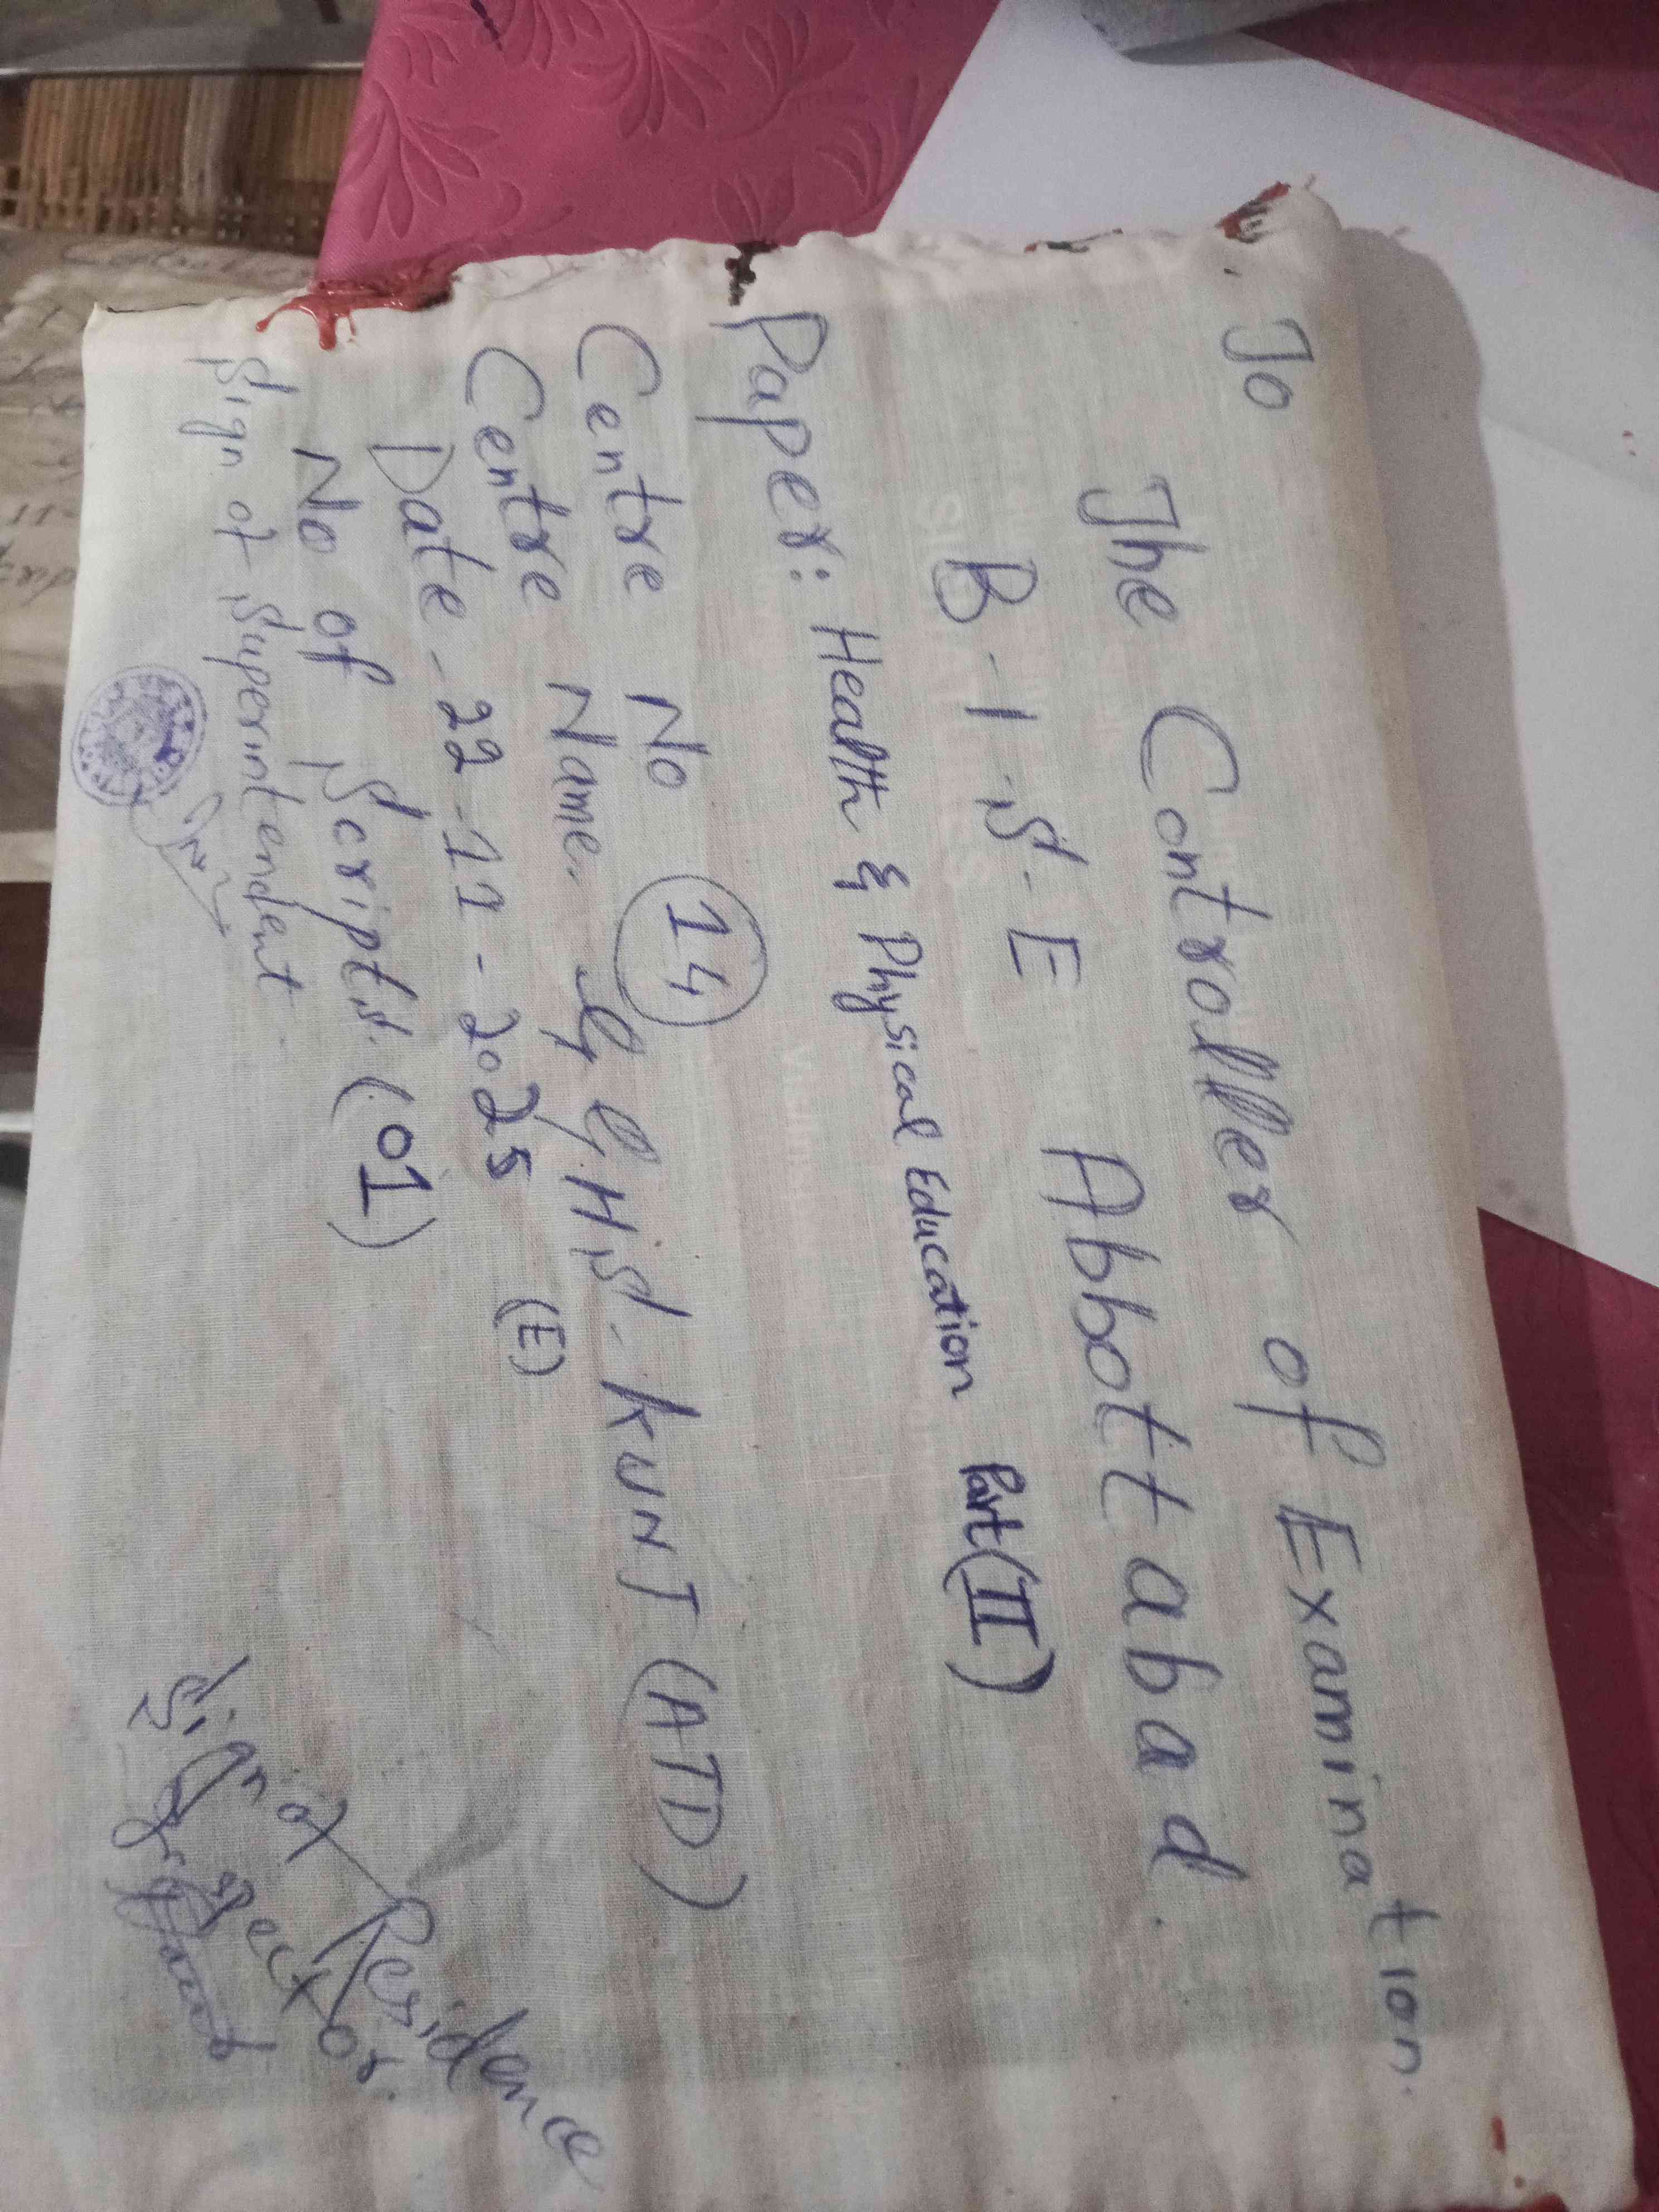 To
The Controller of Examination.
B-I-S-E Abbottabad.
Paper: Health & Physical Education Part (II)
Centre No 14
Centre Name. GGHS. KUNJ (ATD)
Date - 22-11-2025 (E)
No of Scripts. (01)
Sign of Superintendent.
Sign of Residence
Inspector.